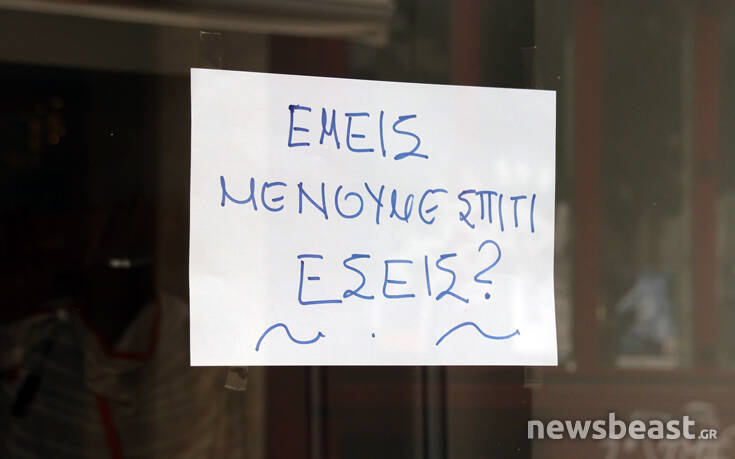 ΕΜΕΙΣ
ΜΕΝΟΥΜΕ ΣΠΙΤΙ
ΕΣΕΙΣ?
newsbeast.GR